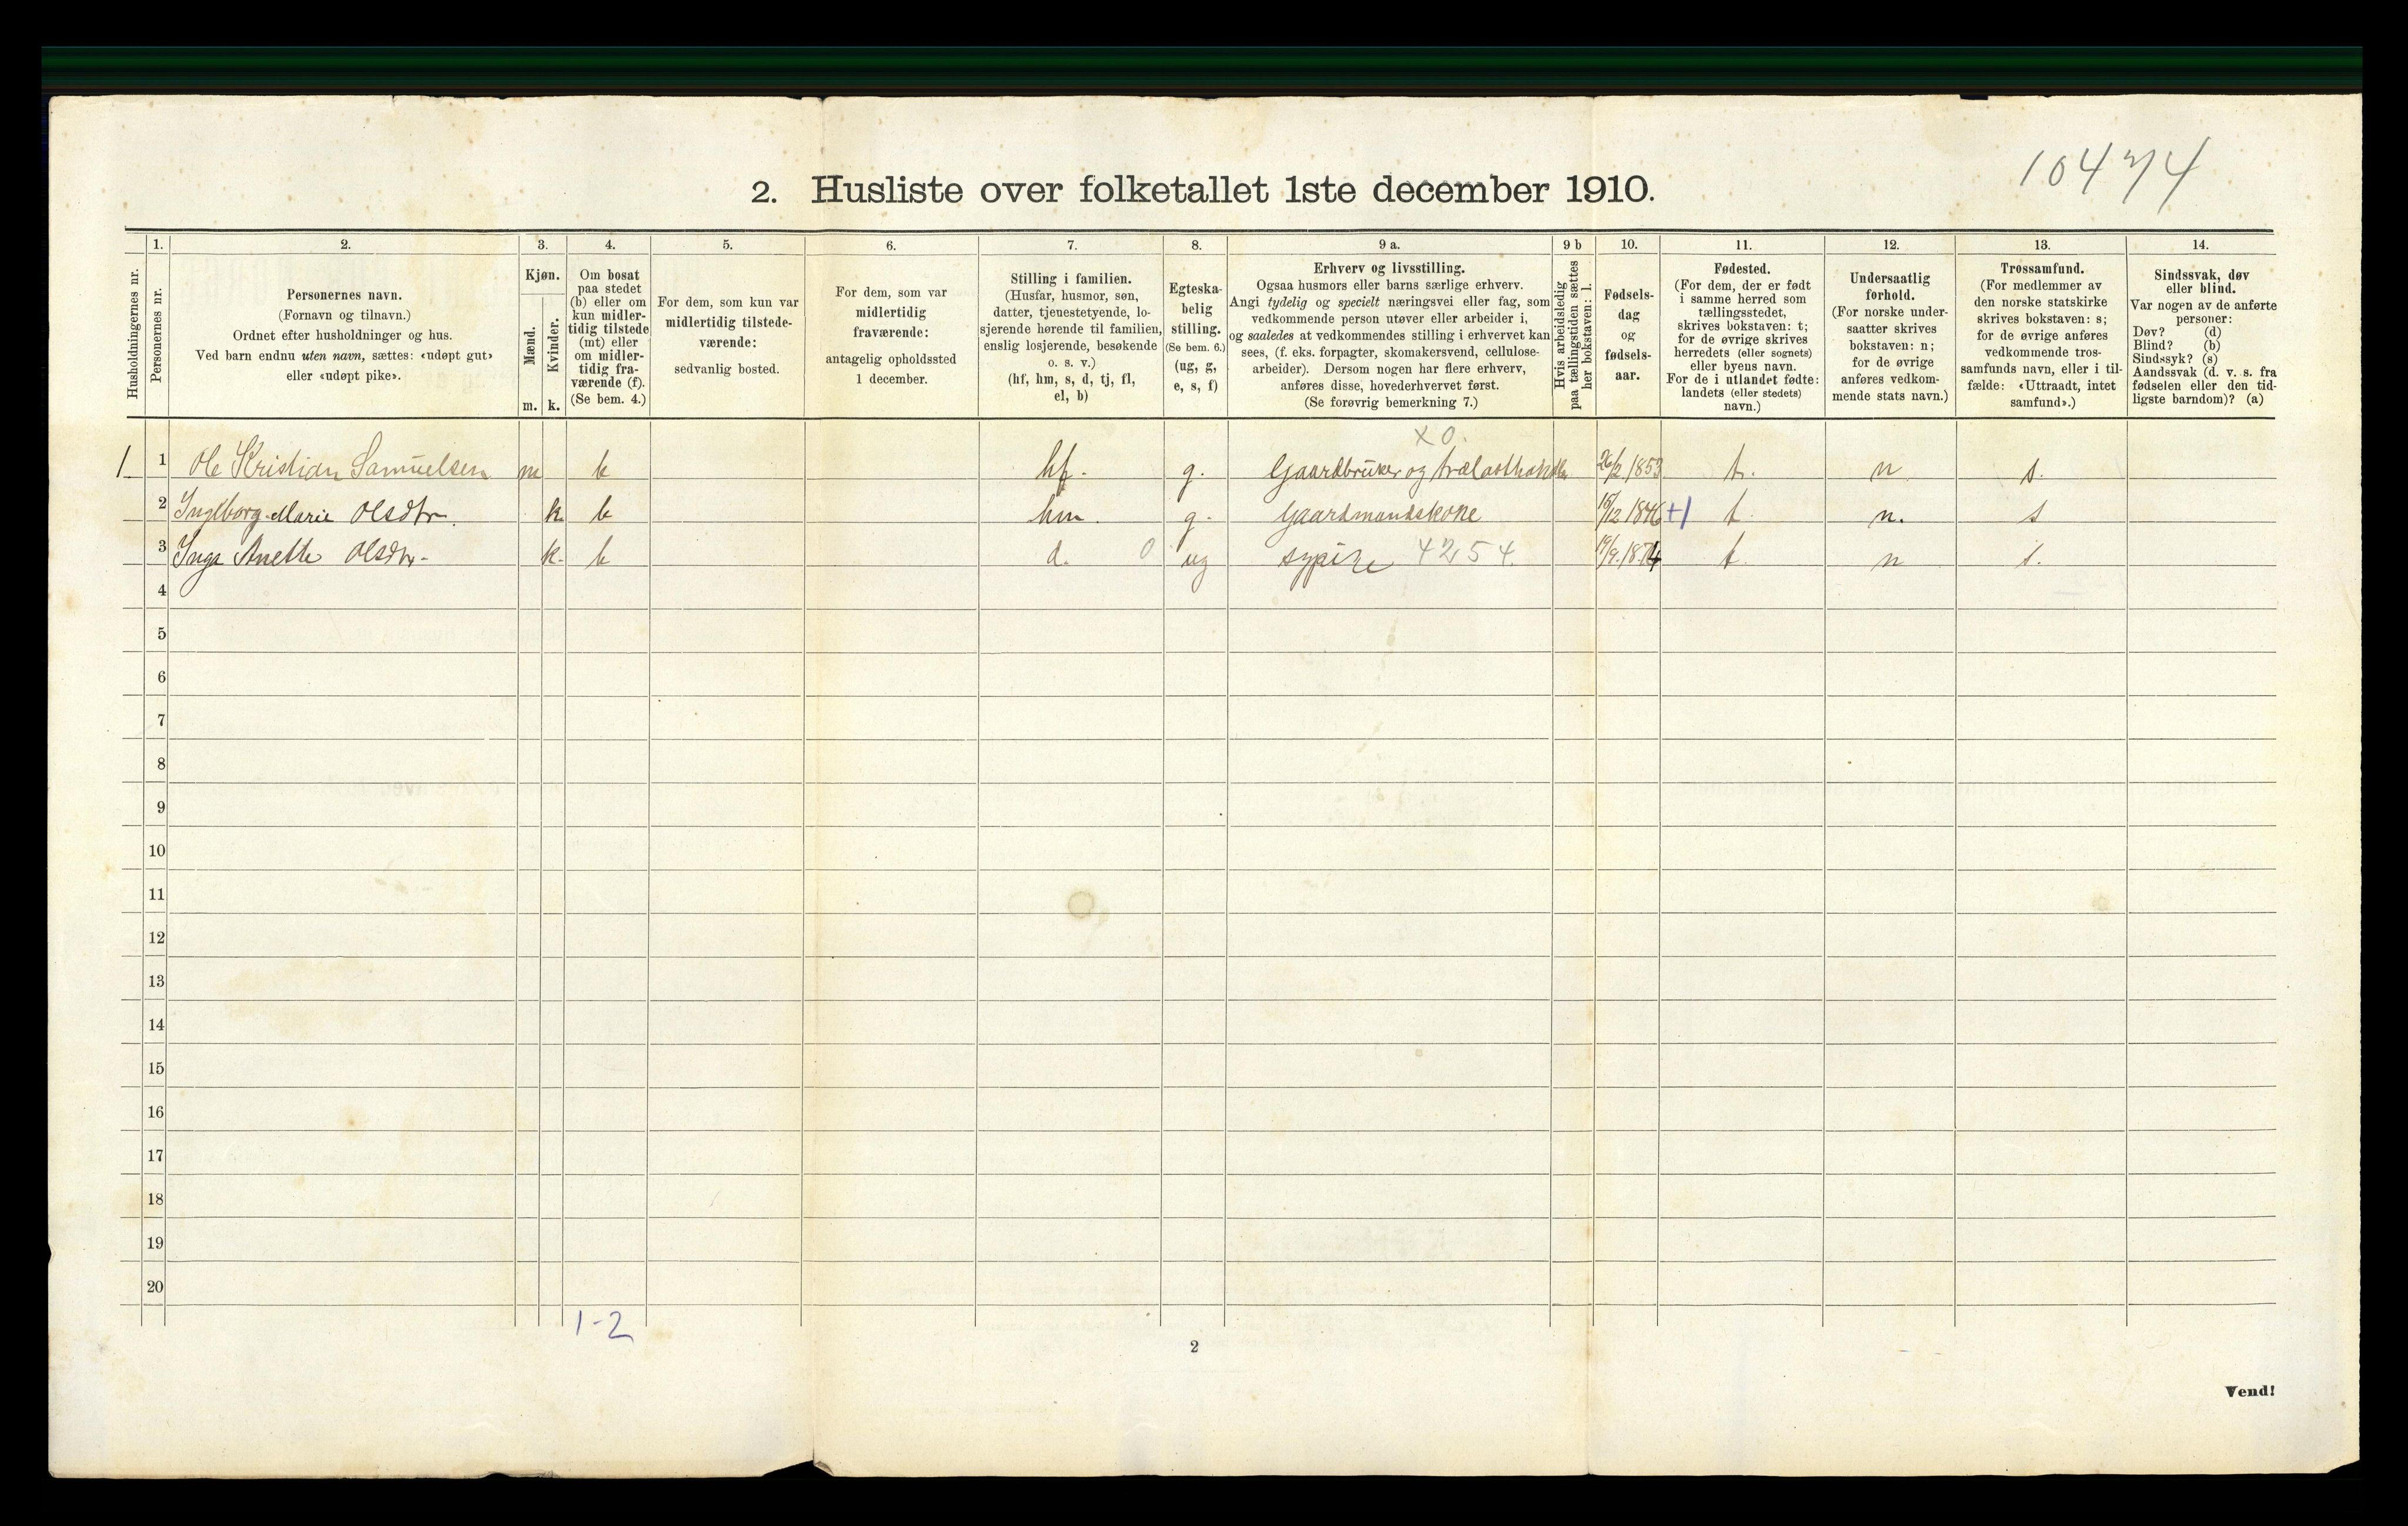 10474
2. Husliste over folketallet 1ste december 1910.
Husholdningernes nr.
1.
Personernes nr.
2.
Personernes navn.
(Fornavn og tilnavn.)
Ordnet efter husholdninger og hus.
Ved barn endnu uten navn, sættes: «udøpt gut»
eller «udøpt pike».
3.
Kjøn.
Mænd.
Kvinder.
m. k.
4.
Om bosat
paa stedet
(b) eller om
kun midler-
tidig tilstede
(mt) eller
om midler-
tidig fra-
værende (f).
(Se bem. 4.)
5.
For dem, som kun var
midlertidig tilstede-
værende:
sedvanlig bosted.
6.
For dem, som var
midlertidig
fraværende:
antagelig opholdssted
1 december.
7.
Stilling i familien.
(Husfar, husmor, søn,
datter, tjenestetyende, lo-
sjerende hørende til familien,
enslig losjerende, besøkende
o. s. v.)
(hf, hm, s, d, tj, fl,
el, b)
8.
Egteska-
belig
stilling.
(Se bem. 6.)
(ug, g,
e, s, f)
9 a.
Erhverv og livsstilling.
Ogsaa husmors eller barns særlige erhverv.
Angi tydelig og specielt næringsvei eller fag, som
vedkommende person utøver eller arbeider i,
og saaledes at vedkommendes stilling i erhvervet kan
sees, (f. eks. forpagter, skomakersvend, cellulose-
arbeider). Dersom nogen har flere erhverv,
anføres disse, hovederhvervet først.
(Se forøvrig bemerkning 7.)
9 b
Hvis arbeidsledig
paa tællingstiden sættes
her bokstaven: l.
10.
Fødsels-
dag
og
fødsels-
aar.
11.
Fødested.
(For dem, der er født
i samme herred som
tællingsstedet,
skrives bokstaven: t;
for de øvrige skrives
herredets (eller sognets)
eller byens navn.
For de i utlandet fødte:
landets (eller stedets)
navn.)
12.
Undersaatlig
forhold.
(For norske under-
saatter skrives
bokstaven: n;
for de øvrige
anføres vedkom-
mende stats navn.)
13.
Trossamfund.
(For medlemmer av
den norske statskirke
skrives bokstaven: s;
for de øvrige anføres
vedkommende tros-
samfunds navn, eller i til-
fælde: «Uttraadt, intet
samfund».)
14.
Sindssvak, døv
eller blind.
Var nogen av de anførte
personer:
Døv? (d)
Blind? (b)
Sindssyk? (s)
Aandssvak (d. v. s. fra
fødselen eller den tid-
ligste barndom)? (a)
x 0.
1 1 Ole Kristian Samuelsen m b hf. g. Gaardbruker og trælasthandler 26/2 1853 t. n s.
2 Ingeborg Marie Olsdtr. k b hm. g. Gaardmandskone 15/12 1846 +1 t. n. s
3 Inga Anette Olsdtr. k. b d. 0 ug sypike 4254. 19/9. 1874 t. n s.
4
5
6
7
8
9
10
11
12
13
14
15
16
17
18
19
20
1-2
2
Vend!